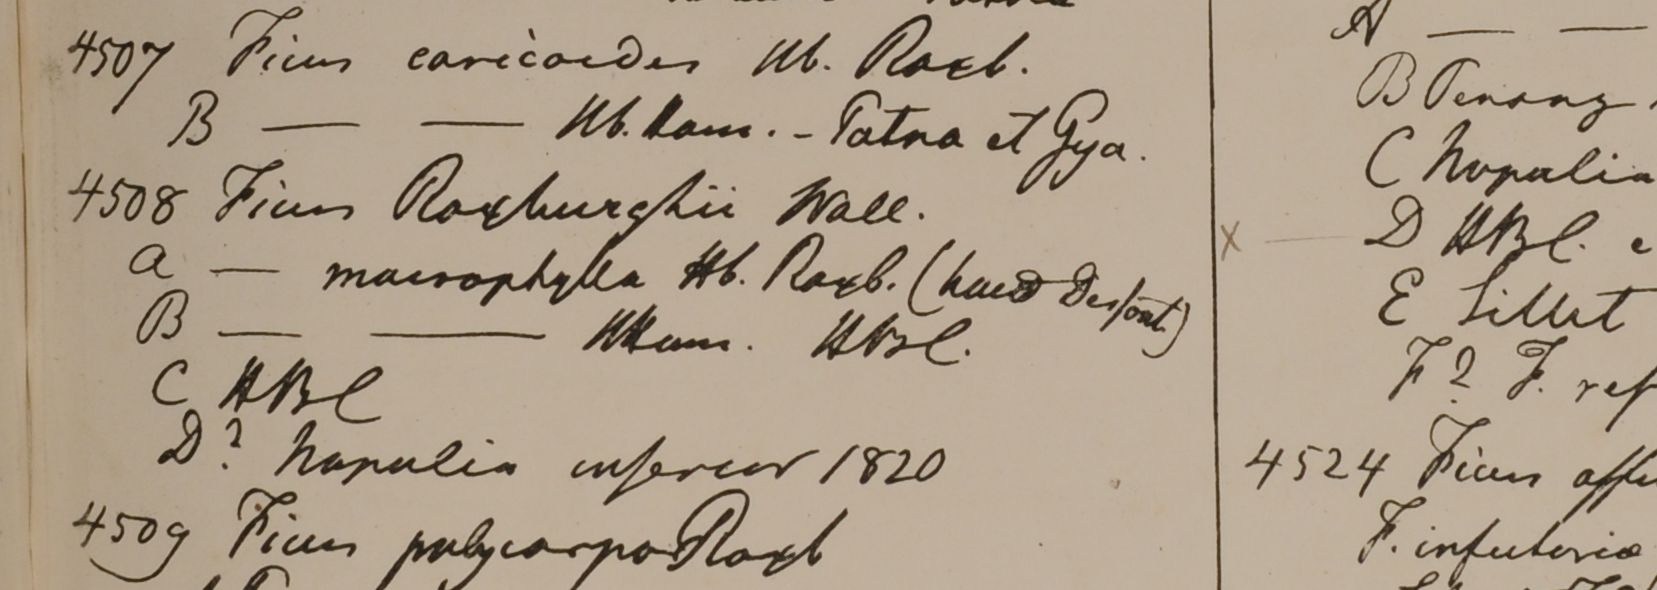 4507 Ficus caricoides Hb. Roxb.
B — — Hb. Ham. - Patna et Gya.
4508 Ficus Roxburghii Wall.
a — macrophylla Hb. Roxb. (haud Desfont.)
B — — HHam. HBC.
C HBC
D? Napalia inferior 1820
4509 Ficus polycarpa Roxb
A — —
B Penang
C Napalia
x — D HBC. e
E Sillet
F? F. rep
4524 Ficus affi
F. infectoria